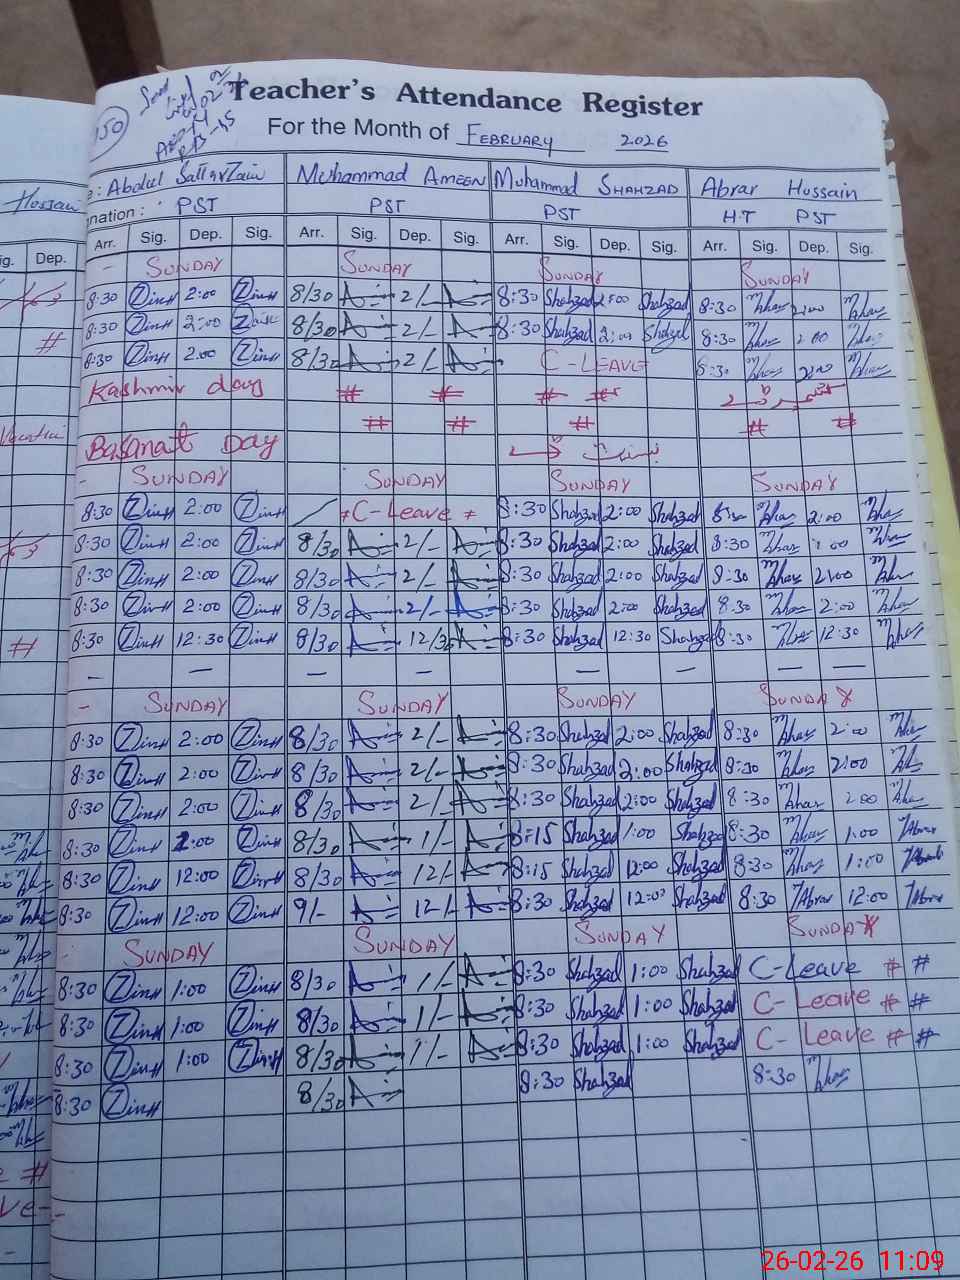 150
Teacher's Attendance Register
For the Month of FEBRUARY 2026
Hossain
Abdul Sattar Zain Muhammad AMEEN Muhammad SHAHZAD Abrar Hussain
nation : PST PST PST H.T PST
ig. Dep. Arr. Sig. Dep. Sig. Arr. Sig. Dep. Sig. Arr. Sig. Dep. Sig. Arr. Sig. Dep. Sig.
- SUNDAY SUNDAY SUNDAY SUNDAY
8:30 Zain 2:00 Zain 8/30 A 2/- A 8:30 Shahzad 2:00 Shahzad 8:30 Abrar 2:00 Abrar
# 8:30 Zain 2:00 Zain 8/30 A 2/- A 8:30 Shahzad 2:00 Shahzad 8:30 Abrar 2:00 Abrar
8:30 Zain 2:00 Zain 8/30 A 2/- A C-LEAVE 8:30 Abrar 2:00 Abrar
Kashmir day # # # # یوم کشمیر
# # # # #
Basanat DAY بسنت
- SUNDAY SUNDAY SUNDAY SUNDAY
8:30 Zain 2:00 Zain C-Leave 8:30 Shahzad 2:00 Shahzad 8:30 Abrar 2:00 Abrar
8:30 Zain 2:00 Zain 8/30 A 2/- A 8:30 Shahzad 2:00 Shahzad 8:30 Abrar 2:00 Abrar
8:30 Zain 2:00 Zain 8/30 A 2/- A 8:30 Shahzad 2:00 Shahzad 8:30 Abrar 2:00 Abrar
8:30 Zain 2:00 Zain 8/30 A 2/- A 8:30 Shahzad 2:00 Shahzad 8:30 Abrar 2:00 Abrar
# 8:30 Zain 12:30 Zain 8/30 A 12/30 A 8:30 Shahzad 12:30 Shahzad 8:30 Abrar 12:30 Abrar
- - - - - - - -
- SUNDAY SUNDAY SUNDAY SUNDAY
8:30 Zain 2:00 Zain 8/30 A 2/- A 8:30 Shahzad 2:00 Shahzad 8:30 Abrar 2:00 Abrar
8:30 Zain 2:00 Zain 8/30 A 2/- A 8:30 Shahzad 2:00 Shahzad 8:30 Abrar 2:00 Abrar
8:30 Zain 2:00 Zain 8/30 A 2/- A 8:30 Shahzad 2:00 Shahzad 8:30 Abrar 2:00 Abrar
8:30 Zain 1:00 Zain 8/30 A 1/- A 8:15 Shahzad 1:00 Shahzad 8:30 Abrar 1:00 Abrar
8:30 Zain 12:00 Zain 8/30 A 12/- A 8:15 Shahzad 12:00 Shahzad 8:30 Abrar 1:00 Abrar
8:30 Zain 12:00 Zain 9/- A 12/- A 8:30 Shahzad 12:00 Shahzad 8:30 Abrar 12:00 Abrar
SUNDAY SUNDAY SUNDAY SUNDAY
8:30 Zain 1:00 Zain 8/30 A 1/- A 8:30 Shahzad 1:00 Shahzad C-Leave # #
8:30 Zain 1:00 Zain 8/30 A 1/- A 8:30 Shahzad 1:00 Shahzad C-Leave # #
8:30 Zain 1:00 Zain 8/30 A 1/- A 8:30 Shahzad 1:00 Shahzad C-Leave # #
8:30 Zain 8/30 A 8:30 Shahzad 8:30 Abrar
26-02-26 11:09